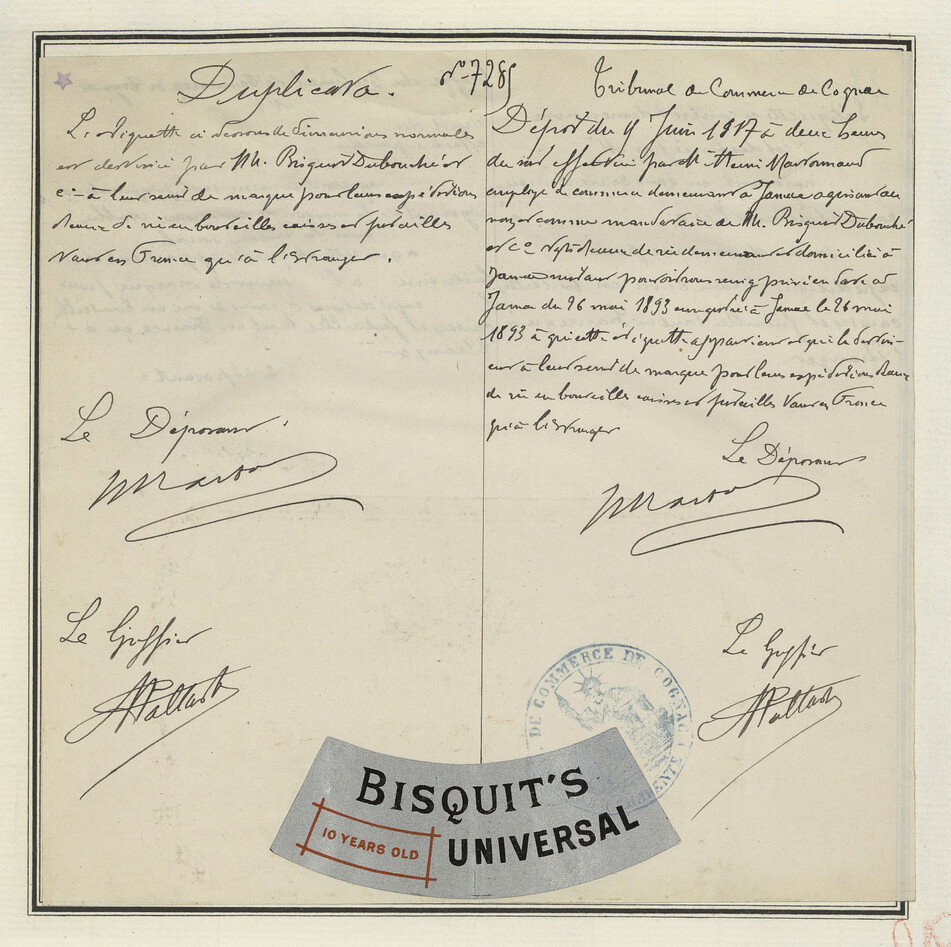 Duplicata.
L'étiquette ci dessous de dimensions normales
est destinée par MM. Bisquit Dubouché et
Cie à leur servir de marque pour leurs expéditions
d'eaux de vie en bouteilles caisses et futailles
tant en France qu'à l'étranger.
Le Déposant.
Le Greffier
No 7285
Tribunal de Commerce de Cognac
Dépôt du 9 Juin 1917 à deux heures
du soir effectué par M. Henri
employé de commerce demeurant à Jarnac agissant au
nom et comme mandataire de MM. Bisquit Dubouché
et Co négts d'eaux de vie demeurant et domiciliés à
Jarnac pouvoir sous seing privé en date à
Jarnac du 26 mai 1893 enregistré à Jarnac le 26 mai
1893 à qui cette étiquette appartient et qui le destinent
à leur servir de marque pour leurs expéditions d'eaux
de vie en bouteilles caisses et futailles tant en France
qu'à l'étranger
Le Déposant
Le Greffier
DE COMMERCE DE COGNAC
BISQUIT'S
10 YEARS OLD
UNIVERSAL